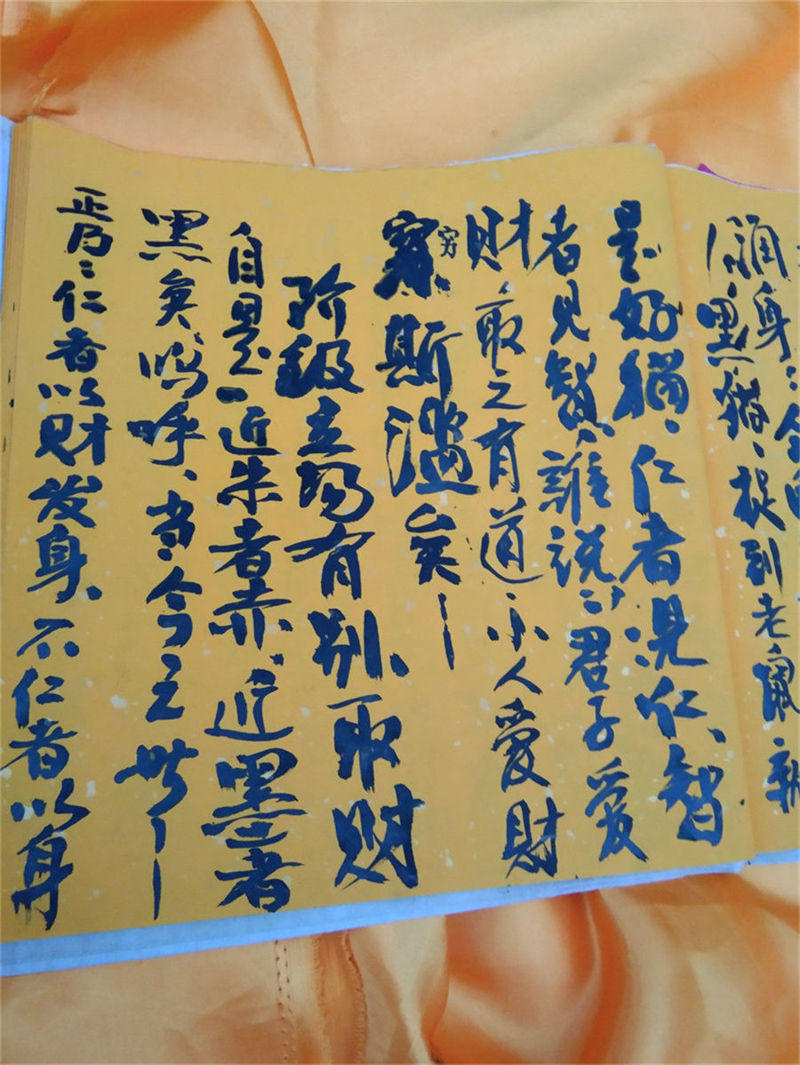 身 今
黑猫、捉到老鼠就
是好貓、仁者見仁、智
者見智、誰説 君子爱
财、取之有道、小人爱财
窮 穷 斯濫矣
阶级立场有别、取财
自是、近朱者赤、近墨者
黑矣、嗚呼、当今之世
正 仁者以财发身、不仁者以身